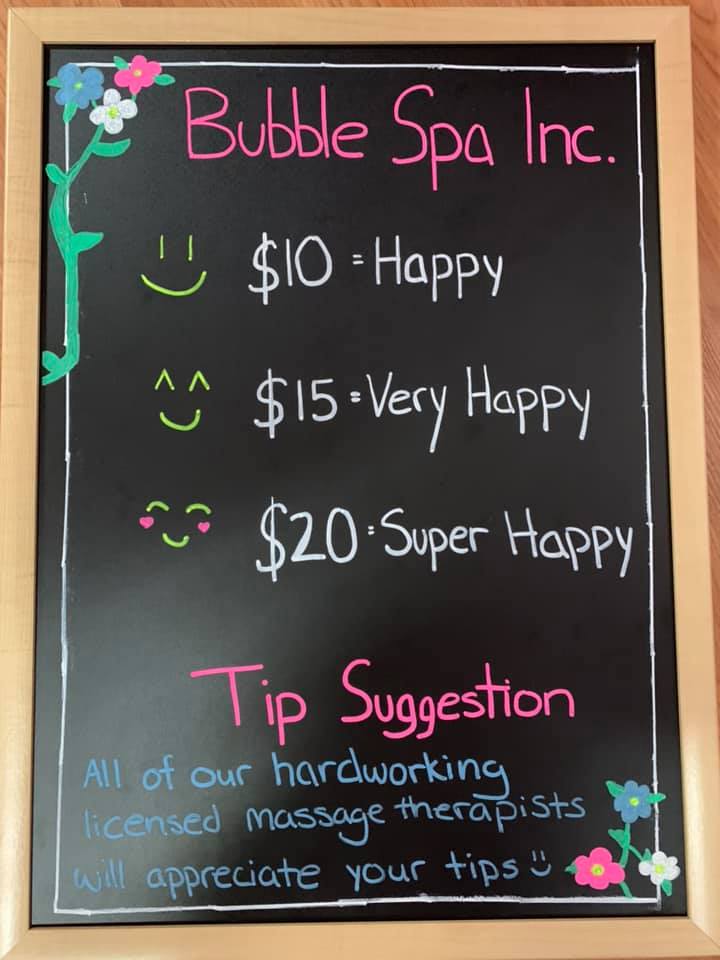 Bubble Spa Inc.
$10 = Happy
$15 = Very Happy
$20 = Super Happy
Tip Suggestion
All of our hardworking
licensed massage therapists
will appreciate your tips